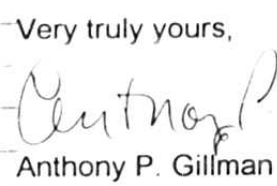 Very truly yours,
Anthony P
Anthony P. Gillman